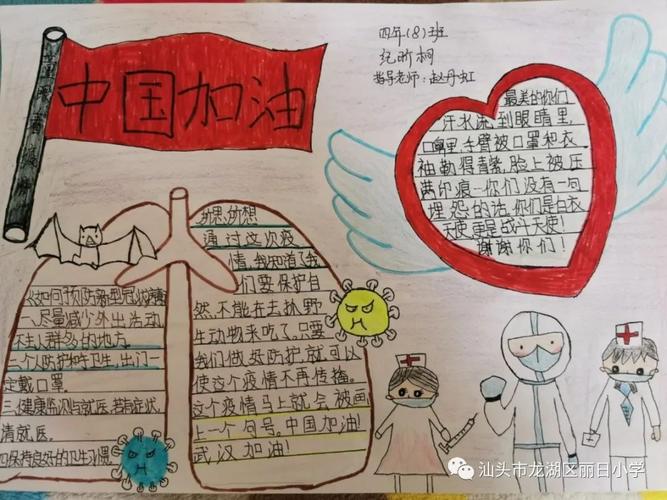 中国加油
四年(8)班
纪昕桐
指导老师：赵丹虹
最美的你们
汗水流到眼睛里，
口鼻里,手臂被口罩和衣
袖勒得青紫,脸上被压
满印痕…你们没有一句
埋怨的话,你们是白衣
天使,更是战斗天使!
谢谢你们!
所思所想
通过这次疫
情,我知道了我
们要保护自
然,不能在去抓野
生动物来吃了,只要
我们做好防护,就可以
使这个疫情不再传播。
这个疫情马上就会被画
上一个句号。中国加油!
武汉加油!
如何预防新型冠状病毒
一、尽量减少外出活动
不去人群多的地方。
二、个人防护和卫生,出门一
定戴口罩
三、健康监测与就医,若有症状,
请就医。
四保持良好的卫生习惯。
汕头市龙湖区丽日小学